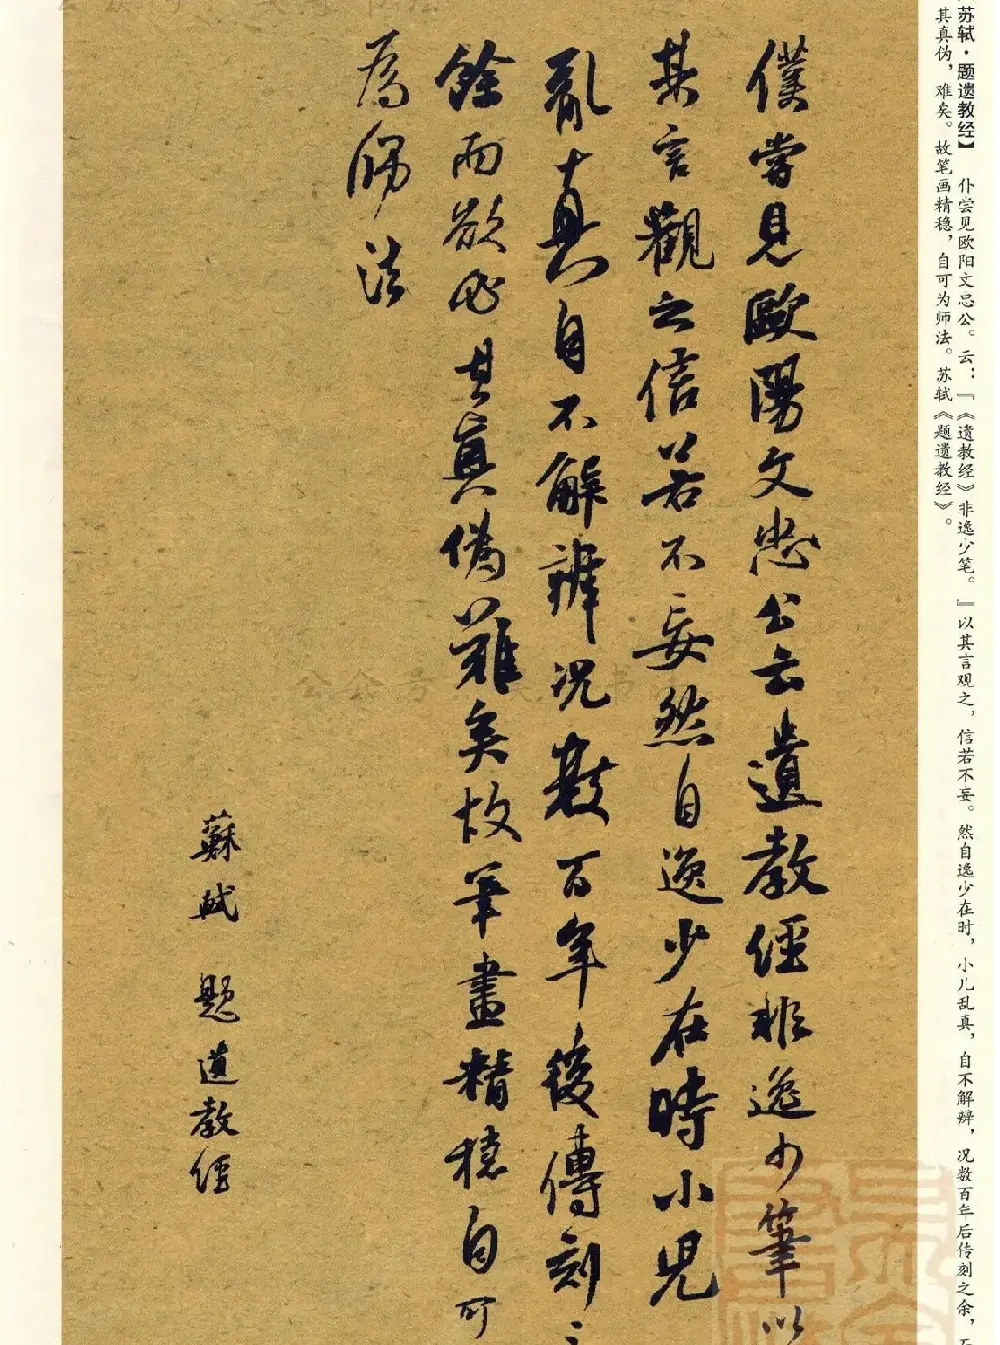 苏轼·题遗教经】 仆尝见欧阳文忠公。云：『《遗教经》非逸少笔。』以其言观之，信若不妄。然自逸少在时，小儿乱真，自不解辩，况数百年后传刻之余，
其真伪，难矣。故笔画精稳，自可为师法。苏轼《题遗教经》。
僕嘗見歐陽文忠公云遺教經非逸少筆以
其言觀之信若不妄然自逸少在時小兒
亂真自不解辨況數百年後傳刻之
餘而欲必其真偽難矣故筆畫精穩自可
為師法
蘇軾 題遺教經